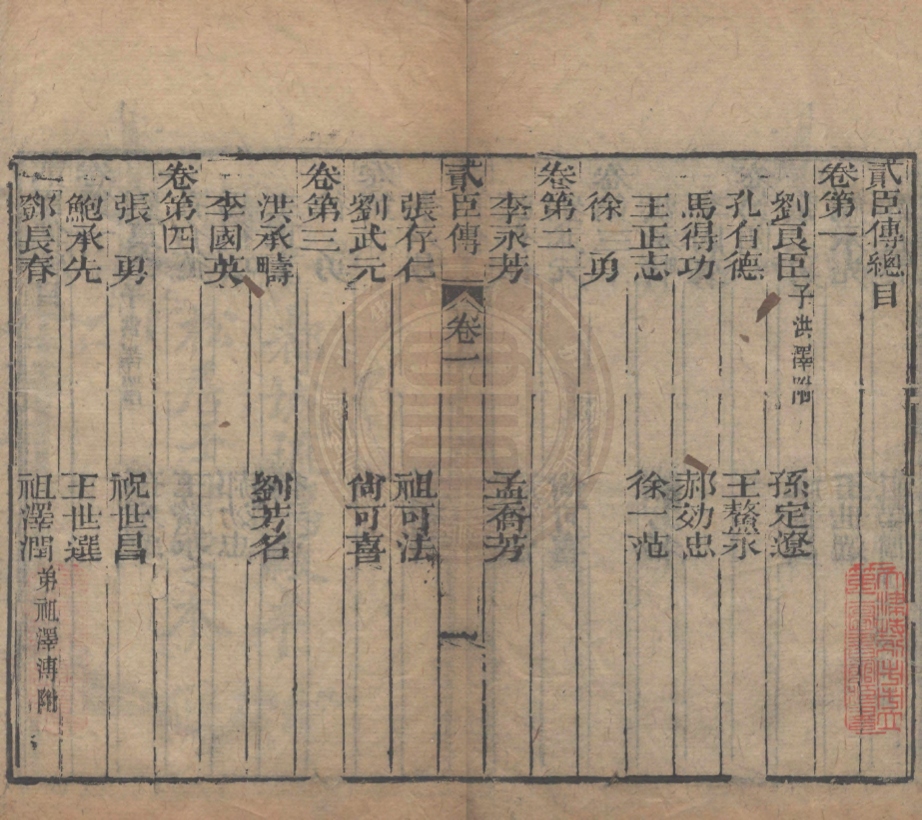 貳臣傳總目
卷第一
劉良臣 子洪澤附 孫定遼
孔有德 王鰲永
馬得功 郝効忠
王正志 徐一范
徐一勇
卷第二
李永芳 孟喬芳
貳臣傳 卷一 一
張存仁 祖可法
劉武元 尙可喜
卷第三
洪承疇 劉芳名
李國英
卷第四
張勇 祝世昌
鮑承先 王世選
鄧長春 祖澤潤 弟祖澤溥附